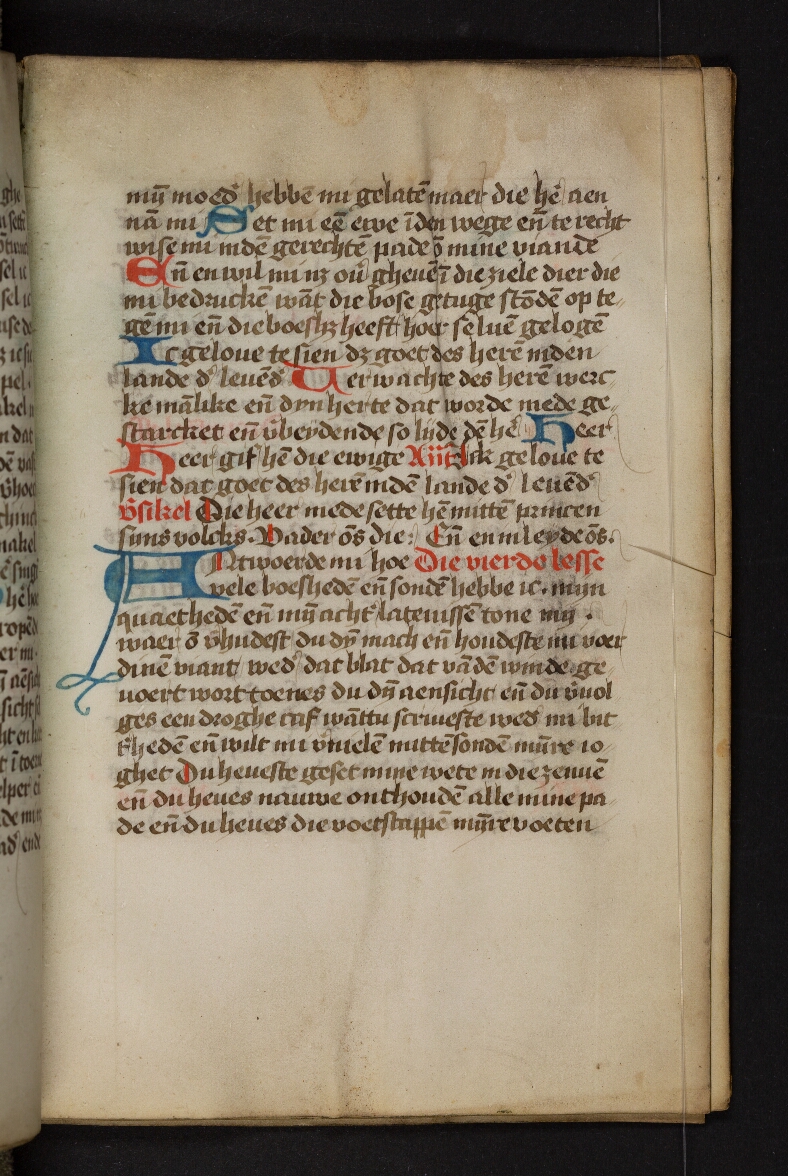 mijn moed' hebbē mi gelatē maer die he' aen
nā mi Set mi eē ewe īden wege eñ te recht
wise mi indē gerechtē pade ō mine viandē
Eñ en wil mi nz ou' gheuē ī die ziele dier die
mi bedruckē wāt die bose getuge stōdē op te
gē mi eñ die boeshz heeft hoer seluē gelogē
Ic geloue te sien dz goet des herē inden
lande d' leuēd' Uerwachte des herē werc
ke mālike eñ dyn herte dat worde mede ge
starcket eñ v'beydende so lyde dē he' Heer
Heer gif hē die ewige Ic geloue te
sien dat goet des herē indē lande d' leuēd'
v'sikel Die heer mede sette hē mittē princen
sijns volcks. Vader ōs die: Eñ en in leyde ōs.
ANtwoerde mi hoe Die vierde lesse
vele boeshedē eñ sondē hebbe ic. mijn
quaethedē eñ mijn acht'latenissē tone mij.
waer ō v'hudestu dyn mach eñ houdeste mi voer
dinē viant wed' dat blat dat vādē winde ge
uoert wort toenes du dijn aensicht eñ du v'uol
ges een droghe caf wāttu scriueste wed' mi bit
t'hedē eñ wilt mi v'nielē mittē sondē mijnre io
ghet Du heueste geset mine voete in die zenuē
eñ du heues nauwe onthoudē alle mine pa
de eñ du heues die voetstappē mijnre voeten